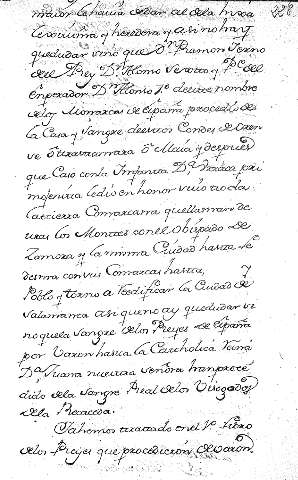 maior le havia de dar al de la
lexitima y heredera y asi no hay
que dudar sino que Dn. Ramon Yerno
del Rey Dn. Alonso Sexto y Pe. del
Emperador Dn. Alonso 7o. de este nombre
de los Monarcas de España procedio de
la Casa y Sangre de estos Condes de
ve o trastamara o Maia y despues
que caso con la Infanta Da. Urraca pri
mojenita le dio en honor
la tierra Comarcana que llaman de
tras los Montes con el obispado de
Zamora y la misma Ciudad hasta Le
desma con sus Comarcas hasta, y
Poblo y torno a reedificar la Ciudad de
Salamanca asi que no ay que dudar si
no que la sangre de los Reyes de España
por varon hasta la Catholica Reina
Da. Juana nuestra señora han proce
dido de la sangre Real de los Visogodos
de la
Ya hemos tratado en el 1o. Libro
de los Reyes que procedieron de varon